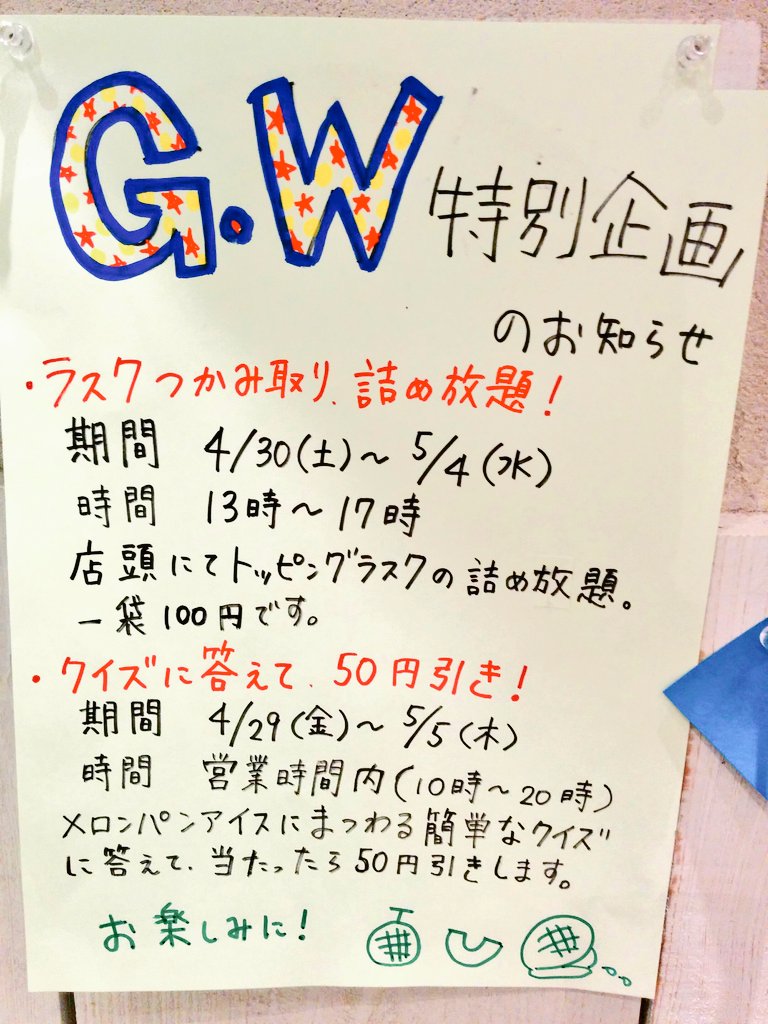 G.W 特別企画
のお知らせ
・ラスクつかみ取り、詰め放題！
期間 4/30(土)～5/4(水)
時間 13時～17時
店頭にてトッピングラスクの詰め放題。
一袋100円です。
・クイズに答えて、50円引き！
期間 4/29(金)～5/5(木)
時間 営業時間内(10時～20時)
メロンパンアイスにまつわる簡単なクイズ
に答えて、当たったら50円引きします。
お楽しみに！